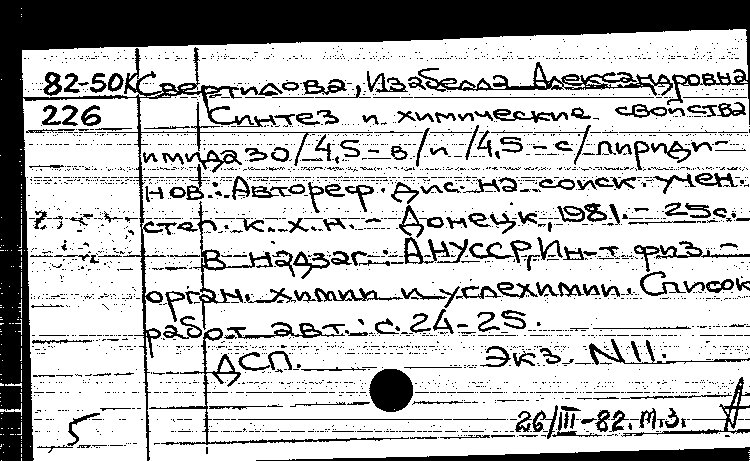 82-50К Свертилова, Изабелла Александровна
226 Синтез и химические свойства
имидазо/4,5-в/и /4,5-с/пириди-
нов.: Автореф. дис. на соиск. учен.
степ. к. х. н. - Донецк, 1981. - 25с.
В надзаг.: АНУССР, Ин-т физ. -
орган. химии и углехимии. Список
работ авт.: с. 24-25.
ДСП. Экз. N 11.
26/III-82. м.з.
5